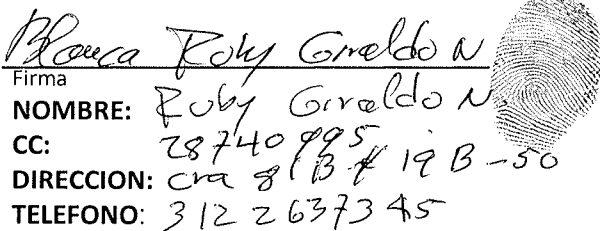 Blanca Roby Giraldo N
Firma
NOMBRE: Ruby Giraldo N.
CC: 28740995
DIRECCION: Cra 81B # 19B-50
TELEFONO: 3122637345